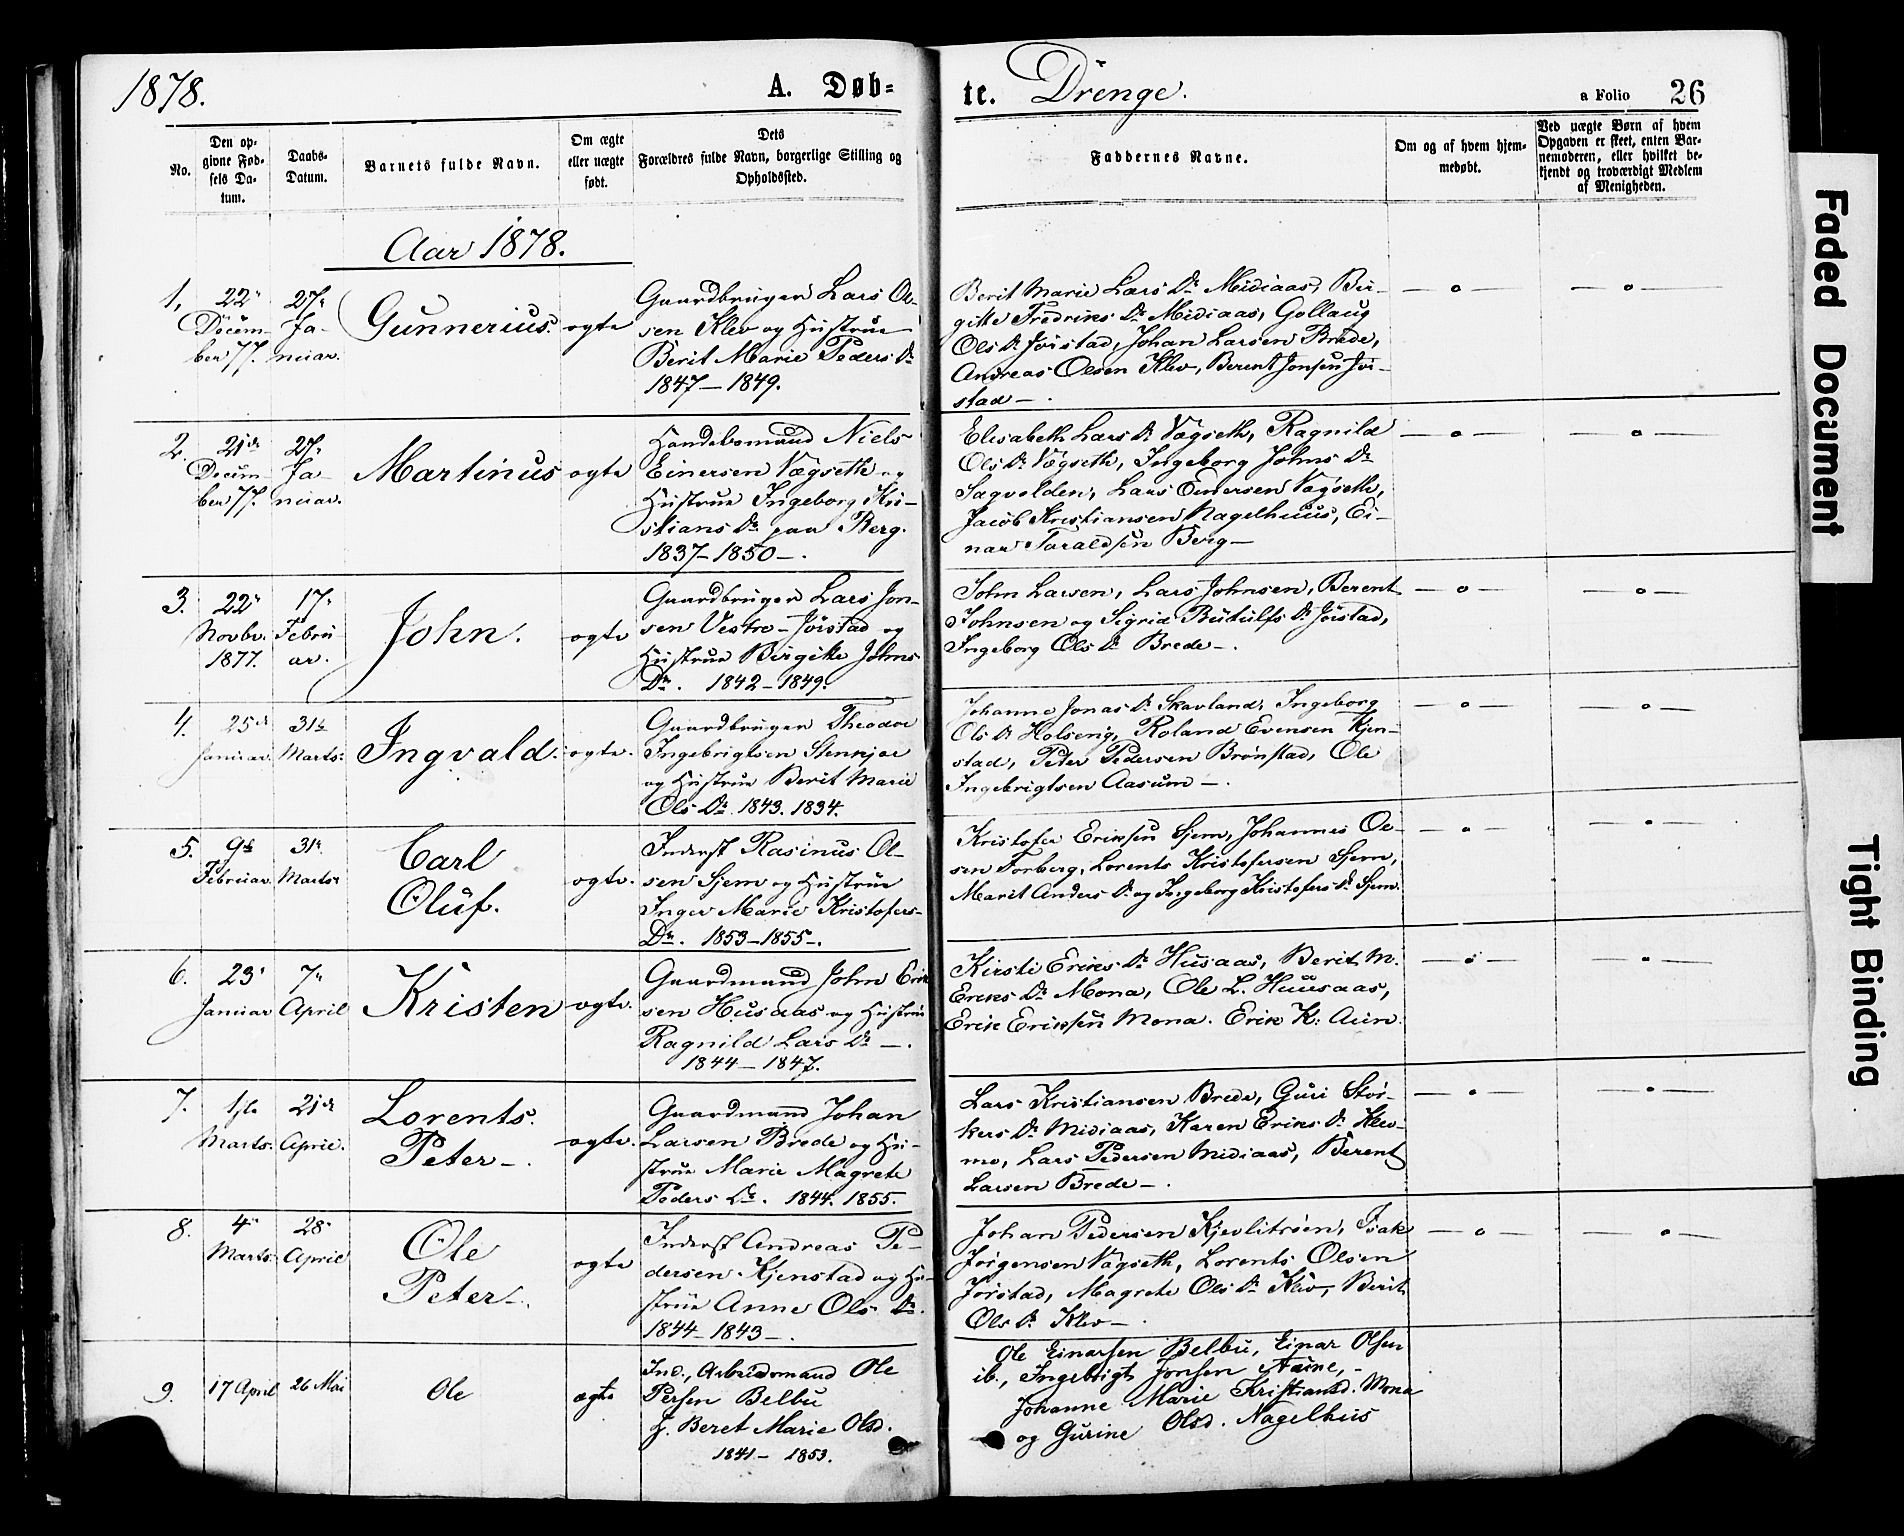 1878.
A. Døb=
te. Drenge.
a Folio 26
No.
Den op-
givne Fød-
sels Da-
tum.
Daabs-
Datum.
Barnets fulde Navn.
Om ægte
eller uægte
født.
Dets
Forældres fulde Navn, borgerlige Stilling og
Opholdssted.
Faddernes Navne.
Om og af hvem hjem-
medøbt.
Ved uægte Børn af hvem
Opgaven er skeet, enten Bar-
nemoderen, eller hvilket be-
kjendt og troværdigt Medlem
af Menigheden.
Aar 1878.
1,
22
Decem-
ber 77.
27
Ja-
nuar.
Gunnerius.
ægte
Gaardbruger Lars Ol-
sen Klev og Hustrue
Berit Marie Peders Dr
1847 - 1849.
Berit Marie Lars Dr Midiaas, Bir-
gitte Fredriks Dr Midiaas, Gollaug
Ols Dr Jørstad, Johan Larsen Brede,
Andreas Olsen Klev, Berent Jonsen Jør-
stad -.
- o -
- o -
2.
21de
Decem-
ber 77.
27
Ja-
nuar.
Martinus
ægte
Niels
Einersen Vægseth og
Hustrue Ingeborg Kri-
stians Dr paa Berg.
1837 - 1850 -.
Elisabeth Lars Dr Vægseth, Ragnild
Ols Dr Vægseth, Ingeborg Johns Dr
Sagvolden, Lars Einersen Vægseth,
Jacob Kristiansen Nagelhuus, Ei-
nar Taraldsen Berg -
- o -
- o -
3.
22
Novbr.
1877.
17
Febru-
ar.
John.
ægte
Gaardbruger Lars Jon-
sen Vestre-Jørstad og
Hustrue Birgitte Johns
Dr. 1842 - 1849.
John Larsen, Lars Johnsen, Berent
Johnsen og Sigrid Butulfs Dr Jørstad,
Ingeborg Ols Dr Brede -.
- o -
- o -
4.
25de
Januar.
31te
Marts.
Ingvald.
ægte.
Gaardbruger Theodor
Ingebrigtsen Stenkjær
og Hustrue Berit Marie
Ols Dr. 1843. 1834.
Johanne Jonas Dr Skavland, Ingeborg
Ols Dr Holseng, Roland Evensen Kjen-
stad, Peter Pedersen Brønstad, Ole
Ingebrigtsen Aasum -.
- o -
- o -
5.
9de
Februar.
31te
Marts.
Carl
Oluf.
ægte.
Inderst Rasinus Ol-
sen Sjem og Hustrue
Inger Marie Kristofers-
Dr. 1853 - 1855 -.
Kristofer Eriksen Sjem, Johannes Ol-
sen Forberg, Lorents Kristofersen Sjem,
Marit Anders Dr og Ingeborg Kristofers Dr Sjem.
- o -
- o -
6.
23
Januar
7de
April
Kristen
ægte.
Gaardmand John Erik
sen Husaas og Hustrue
Ragnild Lars Dr -.
1844 - 1847.
Kirsti Eriks Dr Husaas, Berit M.
Eriks Dr Mona, Ole L. Huusaas,
Erik Eriksen Mona. Erik K: Aun.
- o -
- o -
7.
1ste
Marts.
21de
April.
Lorents
Peter -.
ægte.
Gaardmand Johan
Larsen Brede og Hu-
strue Marie Magrete
Peders Dr. 1844. 1855.
Lars Kristiansen Brede, Guri Stor-
kers Dr Midiaas, Karen Eriks Dr Klev-
mo, Lars Pedersen Midiaas, Berent
Larsen Brede -.
- o -
- o -
8.
4
Marts.
28
April
Ole
Peter -.
ægte
Inderst Andreas Pe-
dersen Kjenstad og Hu-
strue Anne Ols Dr.
1844 - 1843 -.
Johan Pedersen Kjevlitrøen, Isak
Jørgensen Vægseth, Lorents Olsen
Jørstad, Magrete Ols Dr Klev, Berit
Ols Dr Klev -.
- o -
- o -
9.
17 April
26 Mai
Ole
ægte
Ind., Arbeidsmand Ole
Persen Belbu
H. Beret Marie Olsd.
1841 - 1853.
Ole Einarsen Belbu, Einar Olsen
ib., Ingebrigt Jonsen Aune, -
Johanne Marie Kristiansd. Mona
og Gurine Olsd. Nagelhus
Faded Document
Tight Binding